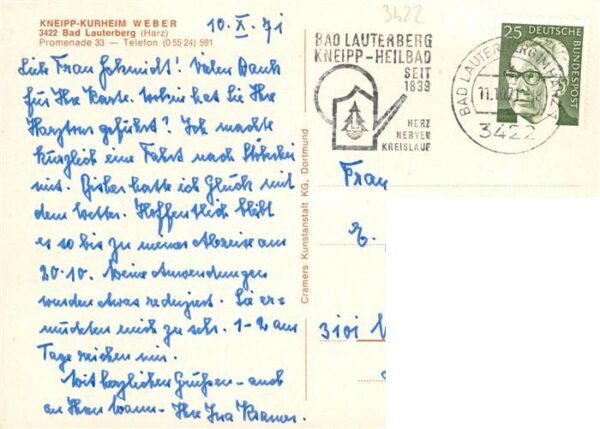 KNEIPP-KURHEIM WEBER
3422 Bad Lauterberg (Harz)
Promenade 33 — Telefon (0 55 24) 591
10. X. 71
Liebe Frau Schmidt! Vielen Dank
für Ihre Karte. Wohin hat Sie Ihre
Harztour geführt? Ich machte
kürzlich eine Fahrt nach
mit. Bisher hatte ich Glück mit
dem Wetter. Hoffentlich bleibt
es so bis zu meiner Abreise am
20.10. Meine Anwendungen
wurden etwas reduziert. Sie er=
müdeten mich zu sehr. 1-2 am
Tage reichen mir.
Mit herzlichen Grüßen - auch
an Ihren Mann - Ihre Ina
Cramers Kunstanstalt KG, Dortmund
3422
BAD LAUTERBERG
KNEIPP-HEILBAD
SEIT
1839
HERZ
NERVEN
KREISLAUF
BAD LAUTERBERG IM HARZ 1
11.10.71
3422
25 DEUTSCHE
BUNDESPOST
Frau
3101